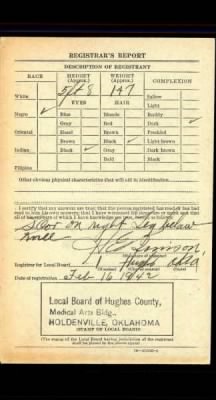 REGISTRAR'S REPORT
DESCRIPTION OF REGISTRANT
RACE HEIGHT (Approx.) WEIGHT (Approx.) COMPLEXION
5 ft 8 147
White Sallow
EYES HAIR Light
Negro ✓ Blue Blonde Ruddy
Gray Red Dark ✓
Oriental Hazel Brown Freckled
Brown Black ✓ Light brown
Indian Black ✓ Gray Dark brown
Bald Black
Filipino
Other obvious physical characteristics that will aid in identification
I certify that my answers are true; that the person registered has read or has had
read to him his own answers; that I have witnessed his signature or mark and that
all of his answers of which I have knowledge are true, except as follows:
Scar on right leg below
knee
Registrar for Local Board Hughes Okla
Date of registration Feb 16 1942
Local Board of Hughes County,
Medical Arts Bldg.,
HOLDENVILLE, OKLAHOMA
(STAMP OF LOCAL BOARD)
(The stamp of the Local Board having jurisdiction of the registrant
shall be placed in the above space)